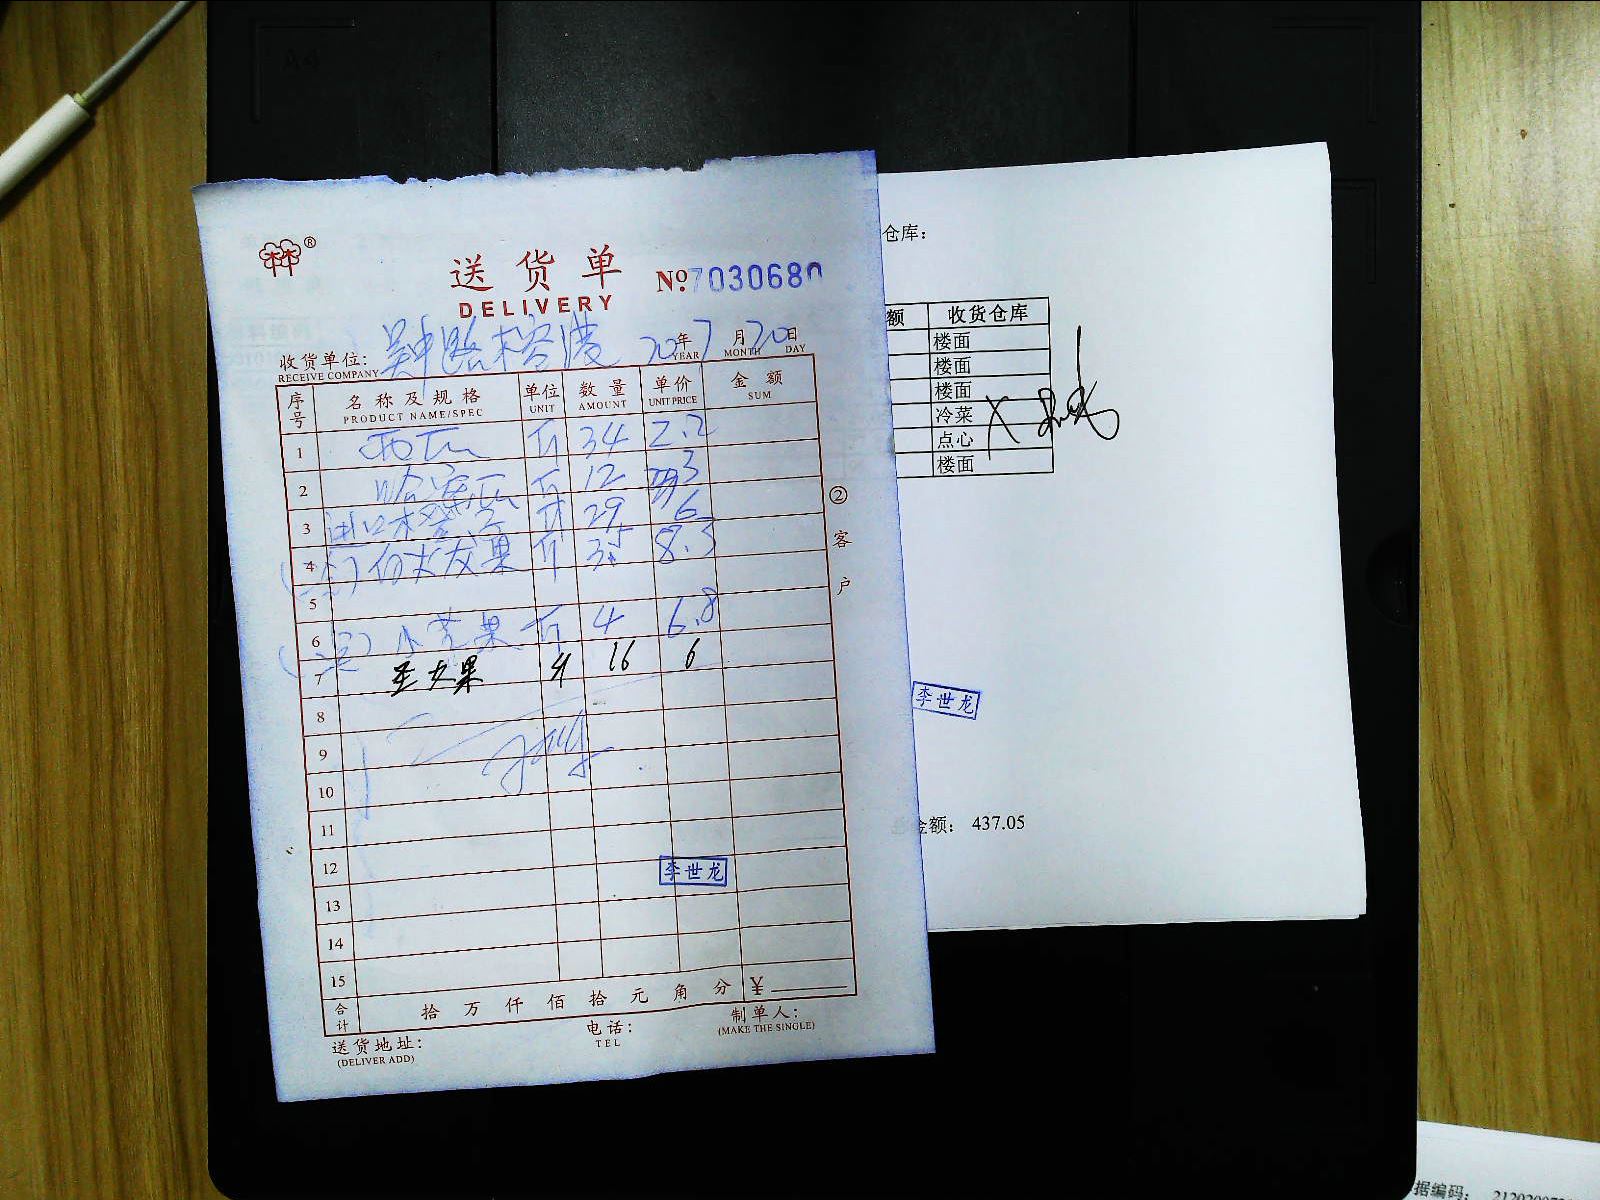 送货单 №7030680
DELIVERY
收货单位: 20年7月20日
RECEIVE COMPANY YEAR MONTH DAY
序号 名称及规格 单位 数量 单价 金额
PRODUCT NAME/SPEC UNIT AMOUNT UNIT PRICE SUM
1 西瓜 斤 34 2.2
2 哈密瓜 斤 12 3
3 进口 斤 29 6
4 白火龙果 斤 8.3
5
6 小芒果 斤 4 6.8
7 圣女果 斤 16 6
8
9
10
11
12 李世龙
13
14
15
合计 拾万仟佰拾元角分 ¥
送货地址: 电话: 制单人:
(DELIVER ADD) TEL (MAKE THE SINGLE)
②客户
仓库:
额 收货仓库
楼面
楼面
楼面
冷菜
点心
楼面
李世龙
金额: 437.05
据编码: